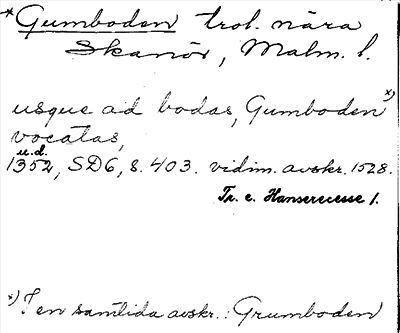 *Gumboden trol. nära
Skanör, Malm. l.
usque ad bodas, Gumboden *)
vocatas,
u.d.
1352, SD6, s. 403. vidim. avskr. 1528.
Tr. e. Hanserecesse 1.
*) I en samtida avskr.: Grumboden